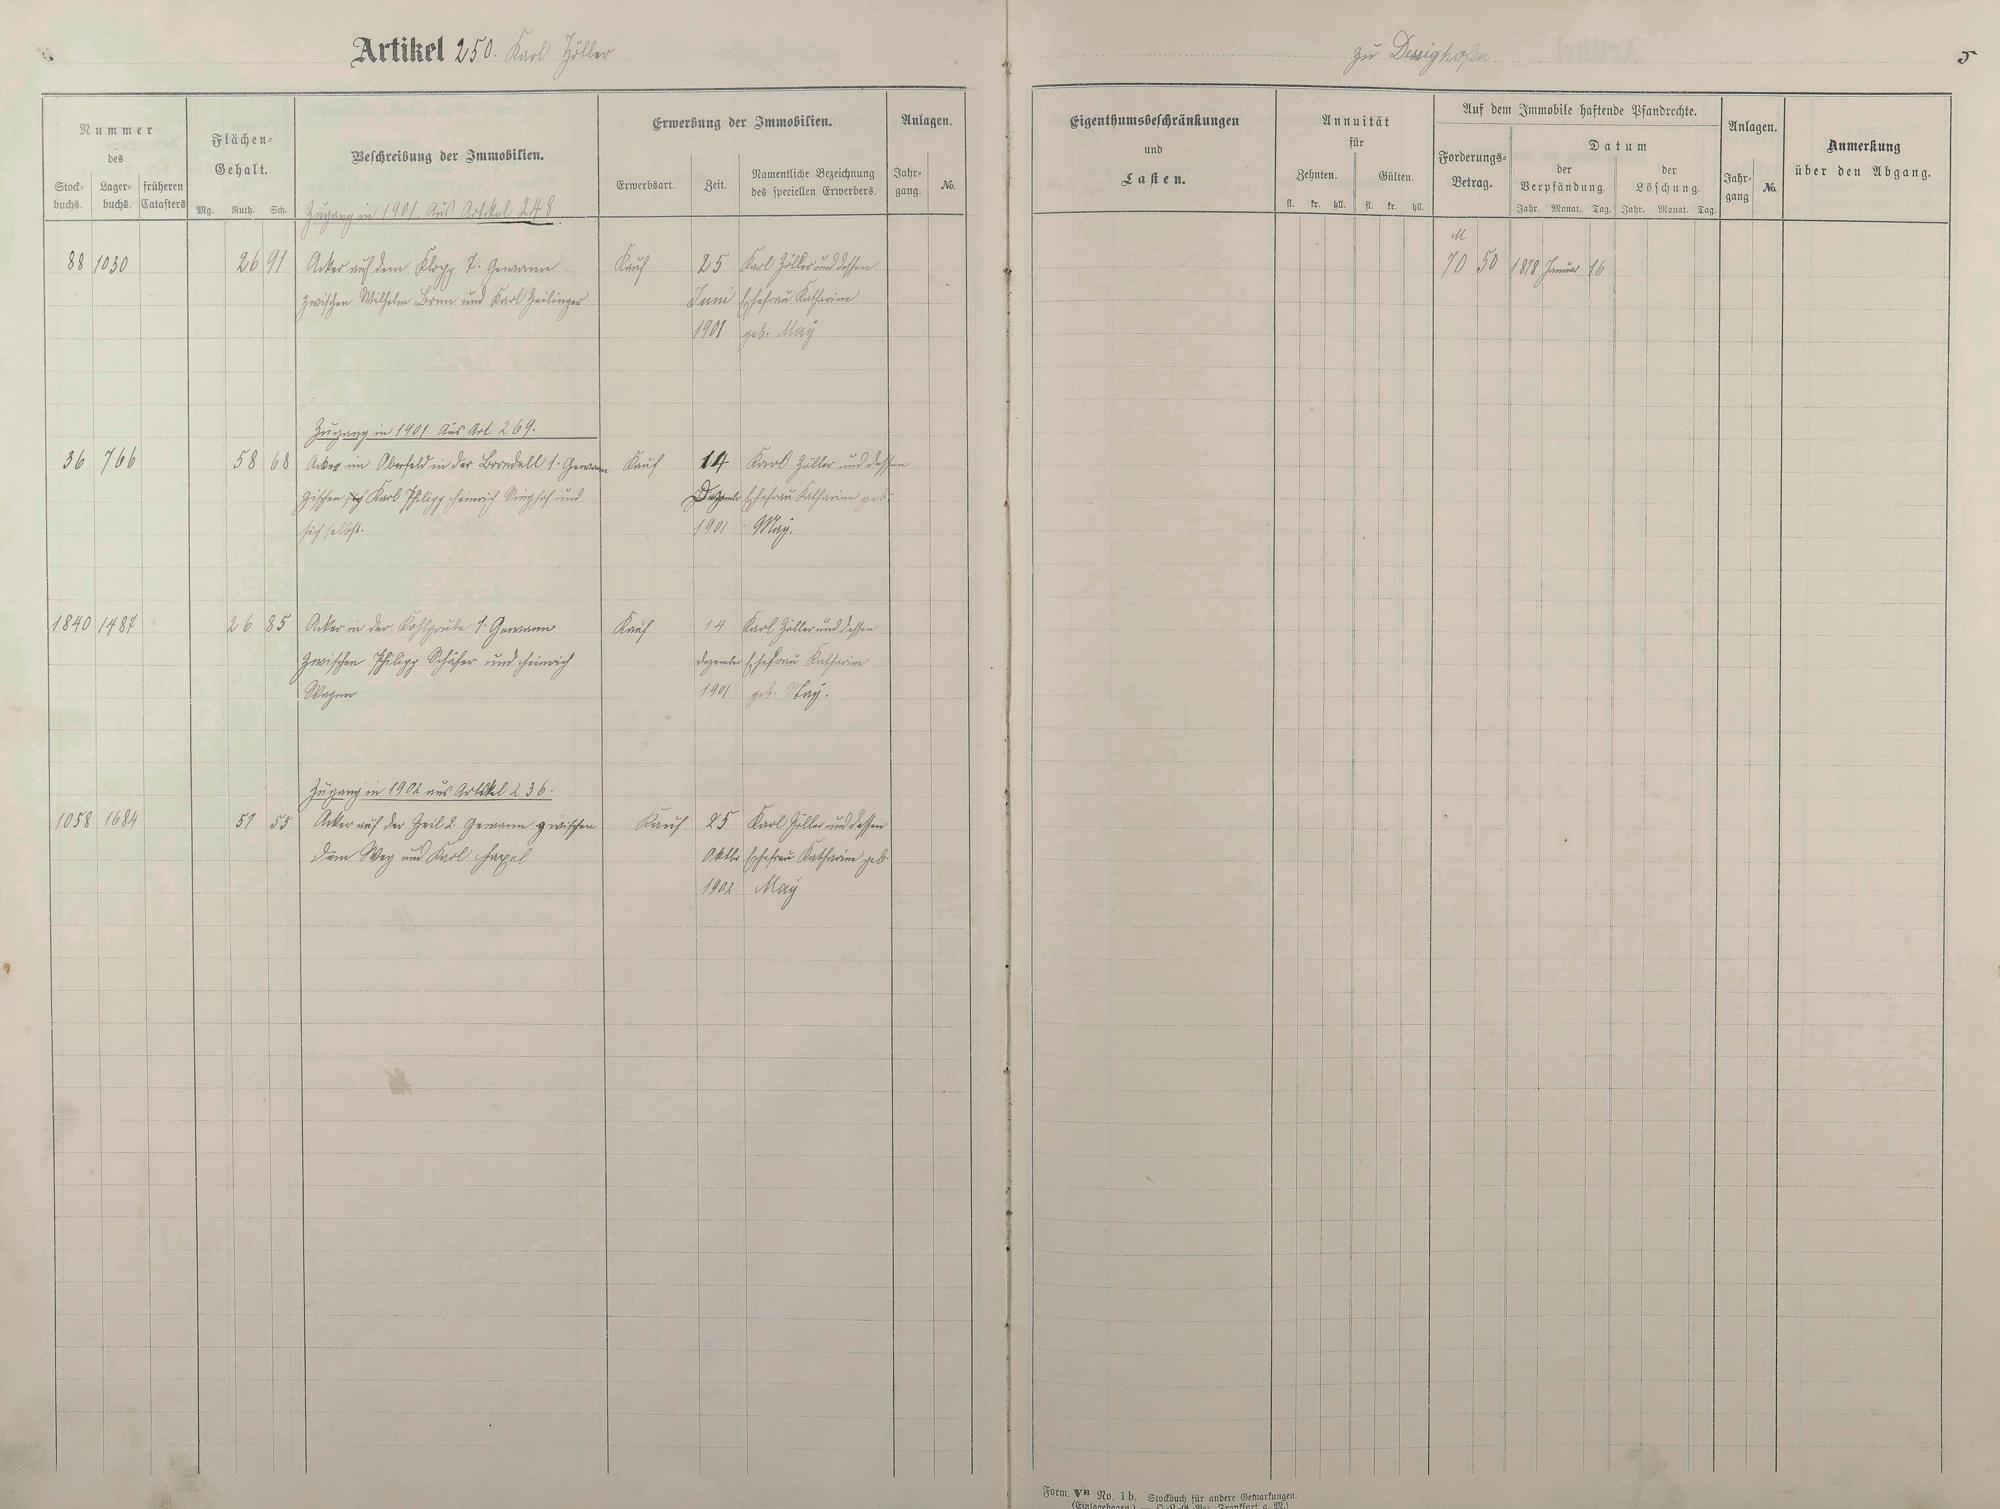 Artikel 250. Karl Zöller
zu Dessighofen
5
Nummer
des
Stock-
buchs.
Lager-
buchs.
früheren
Catasters
Flächen-
Gehalt.
Mg. Ruth. Sch.
Beschreibung der Immobilien.
Erwerbung der Immobilien.
Erwerbsart.
Zeit.
Namentliche Bezeichnung
des speciellen Erwerbers.
Anlagen.
Jahr-
gang.
No.
Eigenthumsbeschränkungen
und
Lasten.
Annuität
für
Zehnten.
Gülten.
fl. kr. hll. fl. kr. hll.
Auf dem Immobile haftende Pfandrechte.
Forderungs-
Betrag.
Datum
der
Verpfändung.
der
Löschung.
Jahr. Monat. Tag. Jahr. Monat. Tag.
Anlagen.
Jahr-
gang
No.
Anmerkung
über den Abgang.
Zugang in 1901. Aus Artikel 248
M
88 1030 26 91 Acker auf dem Klopp 7. Gewann Kauf 25 Karl Zöller und dessen 70 50 1878 Januar 16
zwischen Wilhelm Bonn und Karl Heilinger Juni Ehefrau Katharine
1901 geb. May
Zugang in 1901. Aus Art 269.
36 766 58 68 Acker im Oberfeld in der Borndell 1. Gewann Kauf 14 Karl Zöller und dessen
zwischen sich Karl Philipp Heinrich Singhof und Dezember Ehefrau Katharine geb.
sich selbst. 1901 May.
1840 1487 26 85 Acker in der Kohlgrube 1. Gewann Kauf 14 Karl Zöller und dessen
zwischen Philipp Schäfer und Heinrich Dezember Ehefrau Katharine
Wagner 1901 geb. May.
Zugang in 1902 aus Artikel 236.
1058 1684 51 55 Acker auf der Heil 2. Gewann zwischen Kauf 25 Karl Zöller und dessen
dem Weg und Karl Hazel Oktbr Ehefrau Katharine geb.
1902 May
Form. VB No. 1b. Stockbuch für andere Gemarkungen.
(Einlagebogen.)
Frankfurt a. M.)